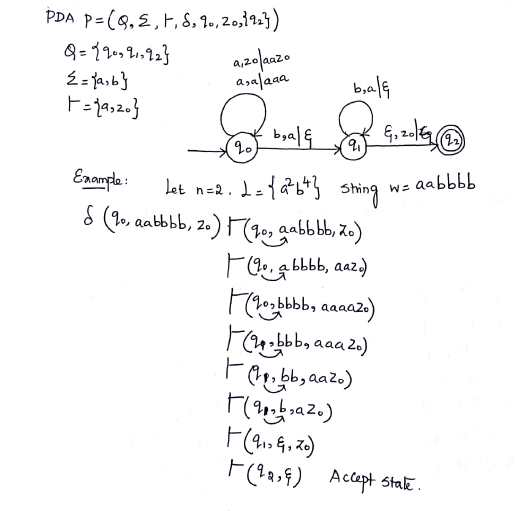 PDA P = (Q, Σ, Γ, δ, q₀, z₀, {q₂})
Q = {q₀, q₁, q₂}
Σ = {a, b}
Γ = {a, z₀}
a, z₀ | aaz₀
a, a | aaa
b, a | ε
b, a | ε
ε, z₀ |
q₀
q₁
q₂
Example: Let n=2. L = {a²b⁴} string w = aabbbb
δ (q₀, aabbbb, z₀) ⊢ (q₀, aabbbb, z₀)
⊢ (q₀, abbbb, aaz₀)
⊢ (q₀, bbbb, aaaaz₀)
⊢ (q₁, bbb, aaaz₀)
⊢ (q₁, bb, aaz₀)
⊢ (q₁, b, az₀)
⊢ (q₁, ε, z₀)
⊢ (q₂, ε) Accept state.